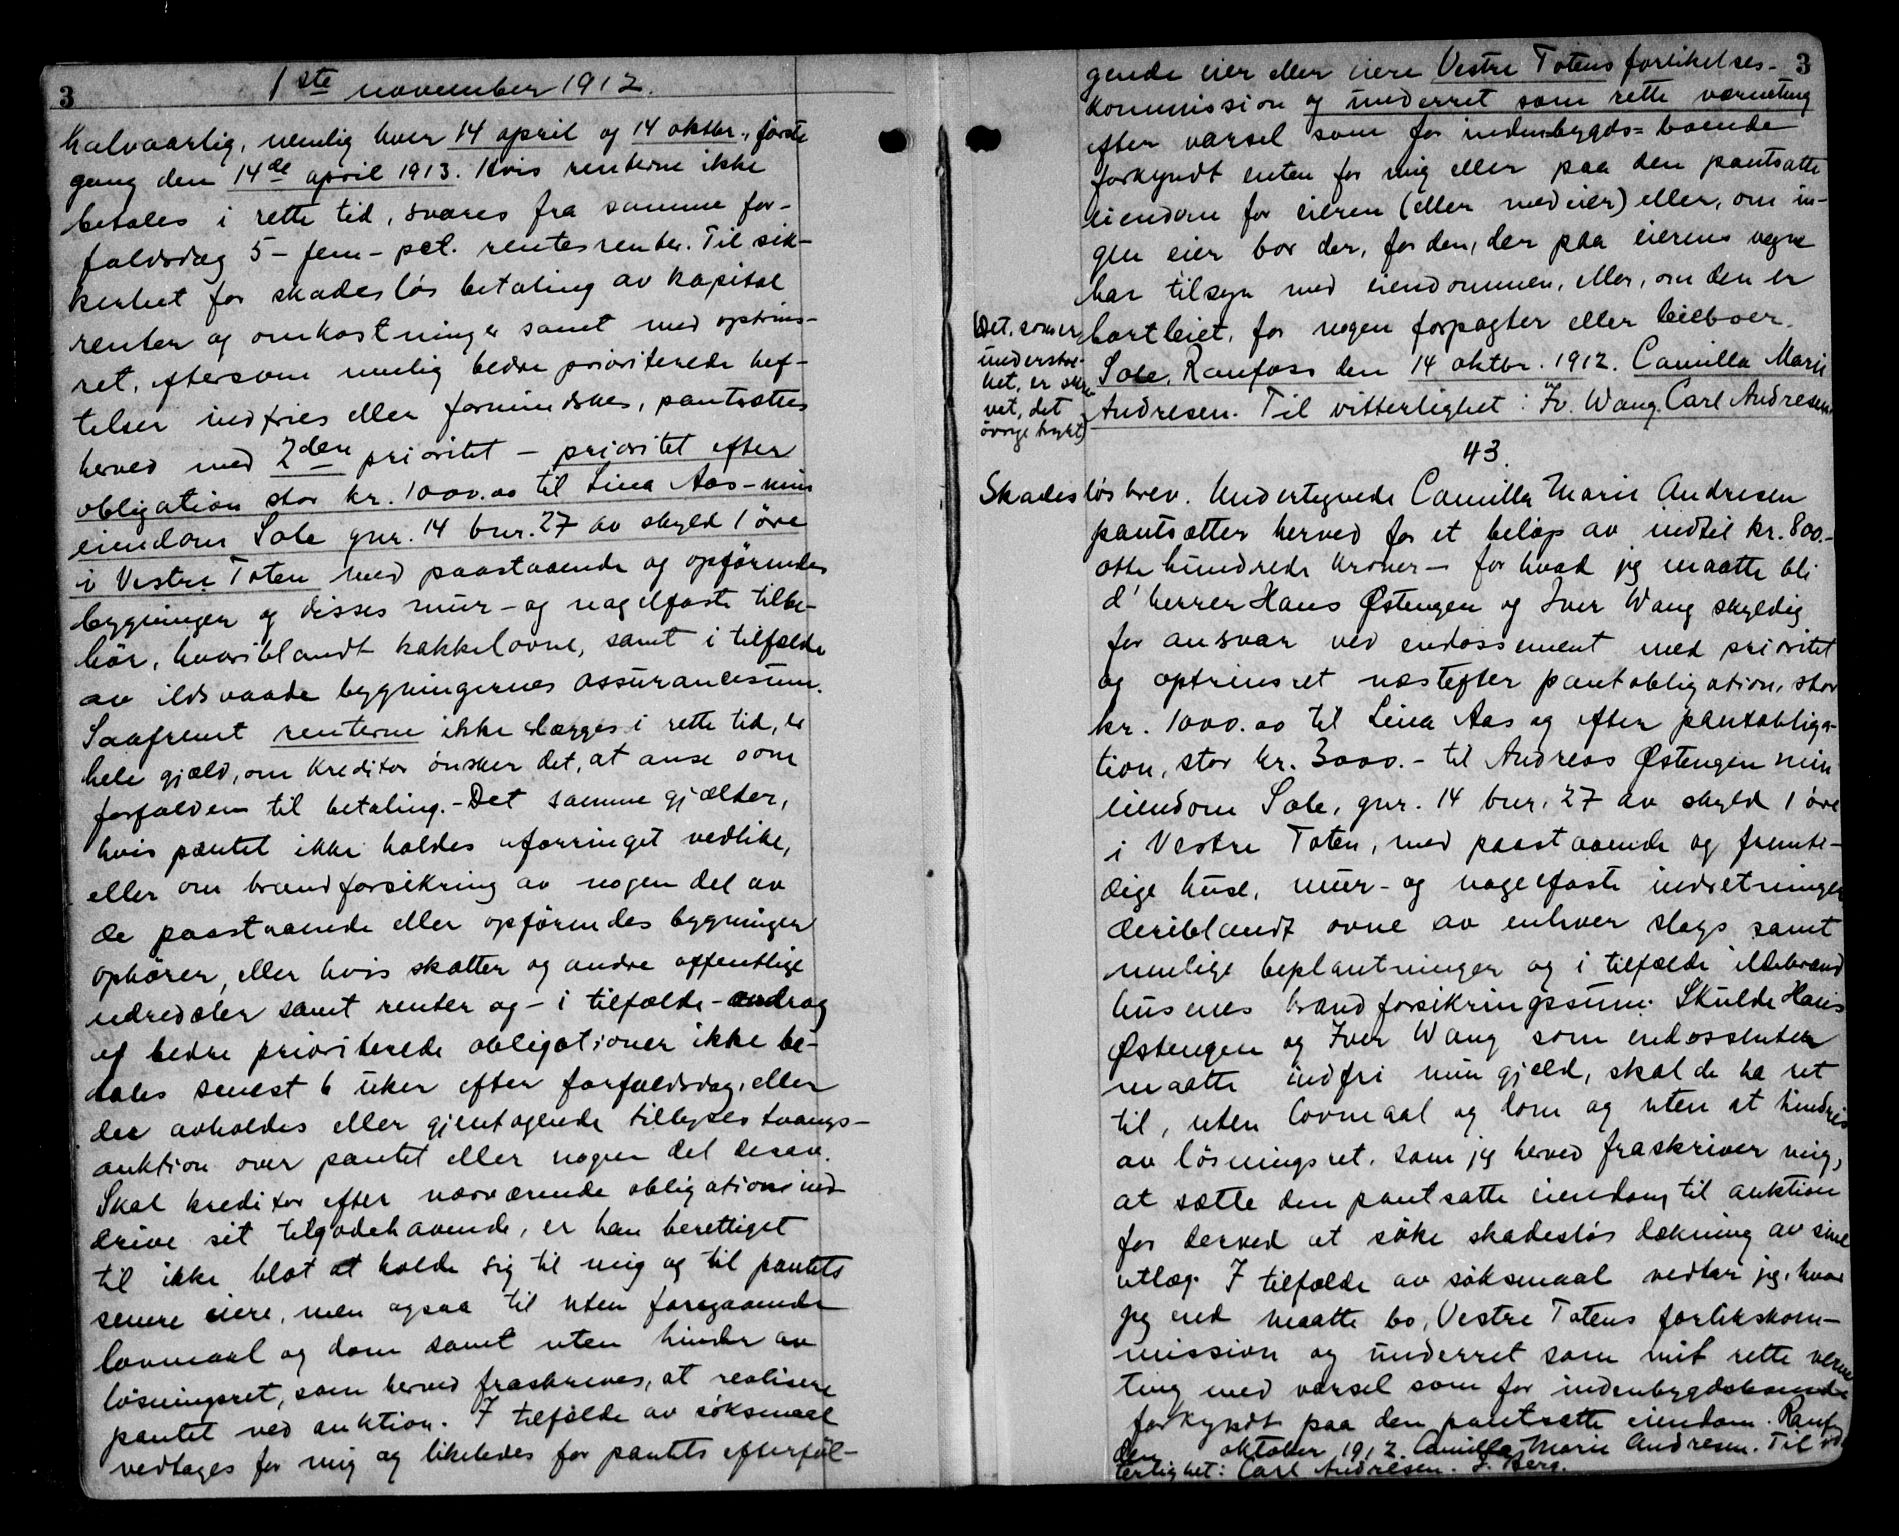 3
1ste november 1912.
halvaarlig, nemlig hver 14 april og 14 oktbr., første
gang den 14de april 1913. Hvis renterne ikke
betales i rette tid, svares fra samme for-
faldsdag 5 - fem - pct. rentesrenter. Til sik-
kerhet for skadesløs betaling av kapital
renter og omkostninger samt med optrins-
ret, eftersom mulig bedre prioriterede hef-
telser indfries eller formindskes, pantsættes
herved med 2den prioritet - prioritet efter
obligation stor kr. 1000.00 til Lina Aas - min
eiendom Sole gnr. 14 bnr. 27 av skyld 1 øre
i Vestre Toten med paastaaende og opførendes
bygninger og disses mur- og nagelfaste tilbe-
hør, hvoriblandt kakkelovne, samt i tilfælde
av ildsvaade bygningernes assurancesum.
Saafremt renterne ikke erlægges i rette tid, er
hele gjæld, om kreditor ønsker det, at anse som
forfalden til betaling. - Det samme gjælder,
hvis pantet ikke holdes uforringet vedlike,
eller om brandforsikring av nogen del av
de paastaaende eller opførendes bygninger
ophører, eller hvis skatter og andre offentlige
utredsler samt renter og - i tilfælde - avdrag
af bedre prioriterede obligationer ikke be-
tales senest 6 uker efter forfaldsdag, eller
der avholdes eller gjentagende tillyses tvangs-
auktion over pantet eller nogen del derav.
Skal kreditor efter nærværende obligation ind
drive sit tilgodehavende, er han berettiget
til ikke blot at holde sig til mig og til pantets
senere eiere, men ogsaa til uten foregaaende
lovmaal og dom samt uten hinder av
løsningsret, som herved fraskrives, at realisere
pantet ved auktion. I tilfælde av søksmaal
vedtages for mig og likeledes for pantets efterføl-
3
gende eier eller eiere Vestre Totens forlikelses-
kommission og underret som rette værneting
efter varsel som for indenbygds-boende
forkyndt enten for mig eller paa den pantsatte
eiendom for eieren (eller medeier) eller, om in-
gen eier bor der, for den, der paa eierens vegne
har tilsyn med eiendommen, eller, om den er
bortleiet, for nogen forpagter eller leieboer.
(Det, som er
understre-
ket, er skre
vet, det
øvrige trykt)
Sole, Raufoss den 14 oktbr. 1912. Camilla Marie
Andresen. Til vitterlighet: Iv. Wang. Carl Andresen.
43.
Skadesløsbrev. Undertegnede Camilla Marie Andresen
pantsætter herved for et beløp av indtil kr. 800.-
otte hundrede kroner - for hvad jeg maatte bli
d'herrer Hans Østengen og Iver Wang skyldig
for ansvar ved endossement med prioritet
og optrinsret næstefter pantobligation, stor
kr. 1000.00 til Lina Aas og efter pantobliga-
tion, stor kr. 3000.- til Andreas Østengen min
eiendom Sole, gnr. 14 bnr. 27 av skyld 1 øre
i Vestre Toten, med paastaaende og fremti-
dige huse, mur- og nagelfaste indretninger
deriblandt ovne av enhver slags samt
mulige beplantninger og i tilfælde ildebrand
husenes brandforsikringssum. Skulde Hans
Østengen og Iver Wang som endossenter
maatte indfri min gjæld, skal de ha ret
til, uten lovmaal og dom og uten at hindres
av løsningsret, som jeg herved fraskriver mig,
at sætte den pantsatte eiendom til auktion
for derved at søke skadesløs dækning av sine
utlæg. I tilfælde av søksmaal vedtar jeg, hvor
jeg end maatte bo, Vestre Totens forlikskom-
mission og underret som mit rette verne
ting med varsel som for indenbygdsboende
forkyndt paa den pantsatte eiendom. Raufoss
den oktober 1912. Camilla Marie Andresen. Til vit-
terlighet: Carl Andresen. J. Berg.